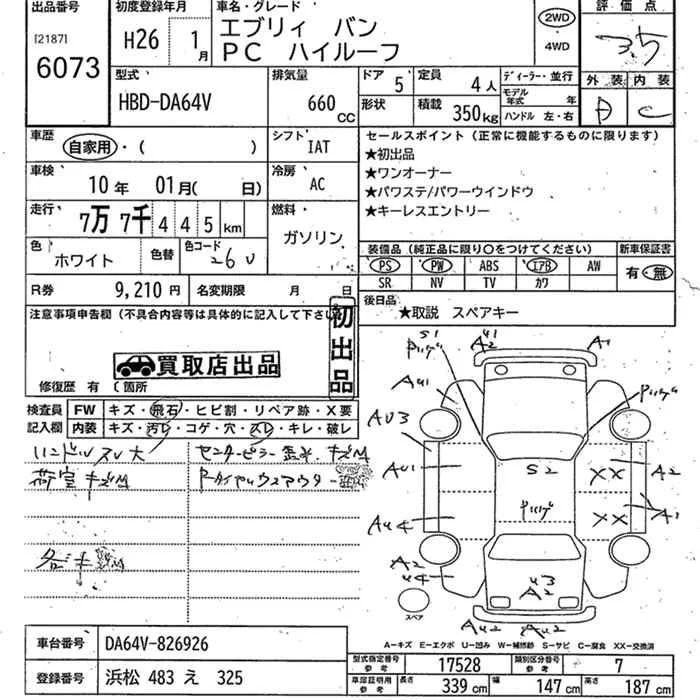 出品番号 初度登録年月 車名・グレード 2WD 評価点
[2187] エブリィ バン
6073 H26 1月 PC ハイルーフ 4WD 3.5
型式 排気量 ドア 5 定員 4人 ディーラー・並行 外装 内装
HBD-DA64V 660 CC 形状 積載 350kg モデル年式 年 ハンドル 左・右 D C
車歴 自家用・( ) シフト IAT セールスポイント(正常に機能するものに限ります)
★初出品
車検 10年 01月( 日) 冷房 AC ★ワンオーナー
★パワステ/パワーウインドウ
走行 7万 7千 4 4 5 km 燃料 ガソリン ★キーレスエントリー
色 ホワイト 色替 色コード 26U 装備品(純正品に限り○をつけてください) 新車保証書
PS PW ABS エアB AW 有・無
SR NV TV カワ
R券 9,210円 名変期限 月 日 後日品 ★取説 スペアキー
注意事項申告欄(不具合内容等は具体的に記入して下さい
初出品
買取店出品
修復歴 有 ( 箇所
検査員 FW キズ・飛石・ヒビ割・リペア跡・X要
記入欄 内装 キズ・汚レ・コゲ・穴・スレ・キレ・破レ
ハンドルスレ大 センターピラー
荷室キズM
S1 U1 A2 A1
AU1
AU3
AU1 S2 XX A2
AU4 XX A1
A2 U4 U3 A2
AU2 AU2
スペア
A-キズ E-エクボ U-凹み W-補修跡 S-サビ C-腐食 XX-交換済
車台番号 DA64V-826926 型式指定番号 参考 17528 類別区分番号 参考 7
登録番号 浜松 483 え 325 車庫証明用 参考 長さ 339 cm 幅 147 cm 高さ 187 cm